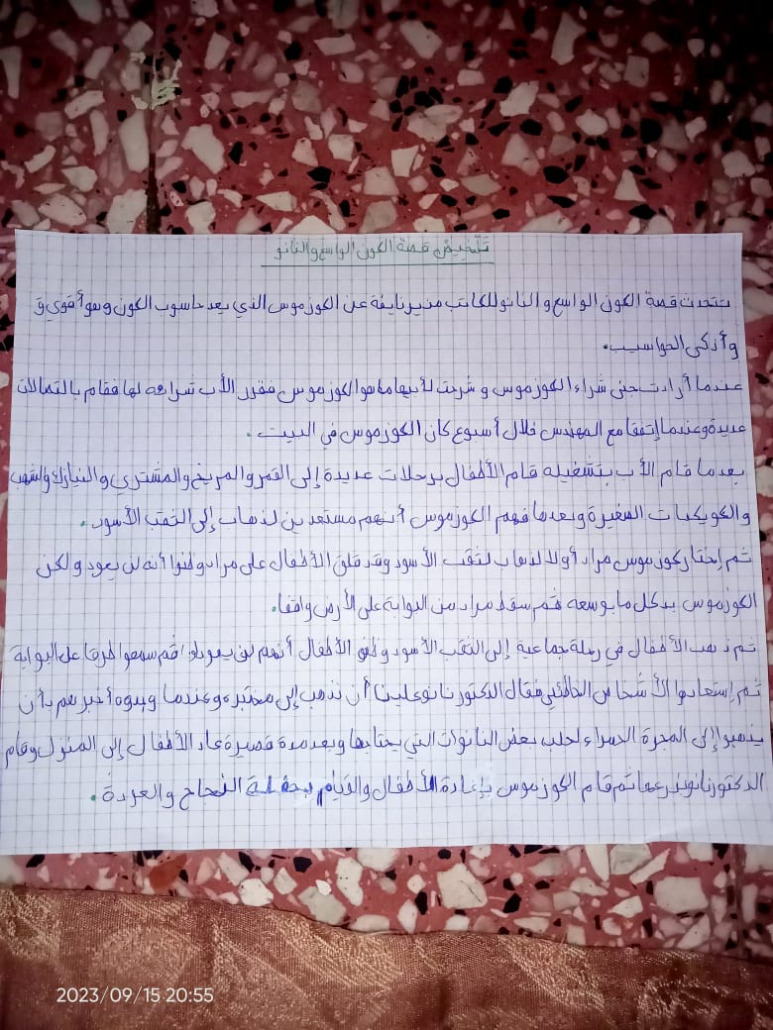 تلخيص قصة الكون الواسع والنانو
تتحدث قصة الكون الواسع و النانو للكاتب منير نايفة عن الكوزموس الذي يعد حاسوب الكون وهو أقوى و
وأذكى الحواسيب.
عندما أرادت جنى شراء الكوزموس و شرحت لأبيها ما هو الكوزموس فقرر الأب شراءه لها فقام بالتصالات
عديدة وعندما إتفقا مع المهندس خلال أسبوع كان الكوزموس في البيت.
بعدما قام الأب بتشغيله قام الأطفال برحلات عديدة إلى القمر والمريخ والمشتري والنيازك والشهب
والكويكبات الصغيرة وبعدها فهم الكوزموس أنهم مستعدين لذهاب إلى الثقب الأسود.
ثم إختار كوزموس مراد أولا لذهاب لثقب الأسود وقد قلق الأطفال على مراد وظنوا أنه لن يعود ولكن
الكوزموس بدكل ما بوسعه ثم سقط مراد من البوابة على الأرض واقفا.
ثم ذهب الأطفال في رحلة جماعية إلى الثقب الأسود وظن الأطفال أنهم لن يعودوا ثم سمعوا طرقا على البوابة
ثم إستعادوا الأشخاص فقال الدكتور نانو علينا أن نذهب إلى مختبره وعندما وجدوه أخبرهم بأن
يذهبوا إلى المجرة الحمراء لجلب بعض النانوات التي يحتاجها وبعد مدة قصيرة عاد الأطفال إلى المنزل وقام
الدكتور نانو ثم قام الكوزموس بإعادة الأطفال والقيام بحفلة النجاح والعودة.
2023/09/15 20:55